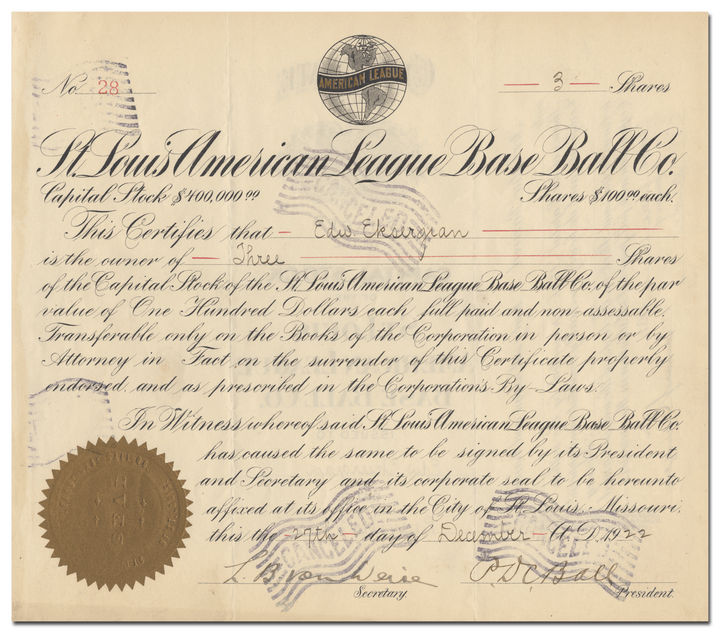 AMERICAN LEAGUE
No 28
3 Shares
St. Louis American League Base Ball Co.
Capital Stock $400,000.00 Shares $100.00 each.
This Certifies that Edw. Eksergian
is the owner of Three Shares
of the Capital Stock of the St. Louis American League Base Ball Co. of the par
value of One Hundred Dollars each full paid and non-assessable.
Transferable only on the Books of the Corporation in person or by
Attorney in Fact on the surrender of this Certificate properly
endorsed, and as prescribed in the Corporation's By-Laws.
In Witness whereof said St. Louis American League Base Ball Co.
has caused the same to be signed by its President
and Secretary and its corporate seal to be hereunto
affixed at its office in the City of St. Louis, Missouri.
this the 27th day of December A.D. 1922
L. B. von Weise P. DeC. Ball
Secretary. President.
CANCELLED
CANCELLED
CANCELLED
SEAL